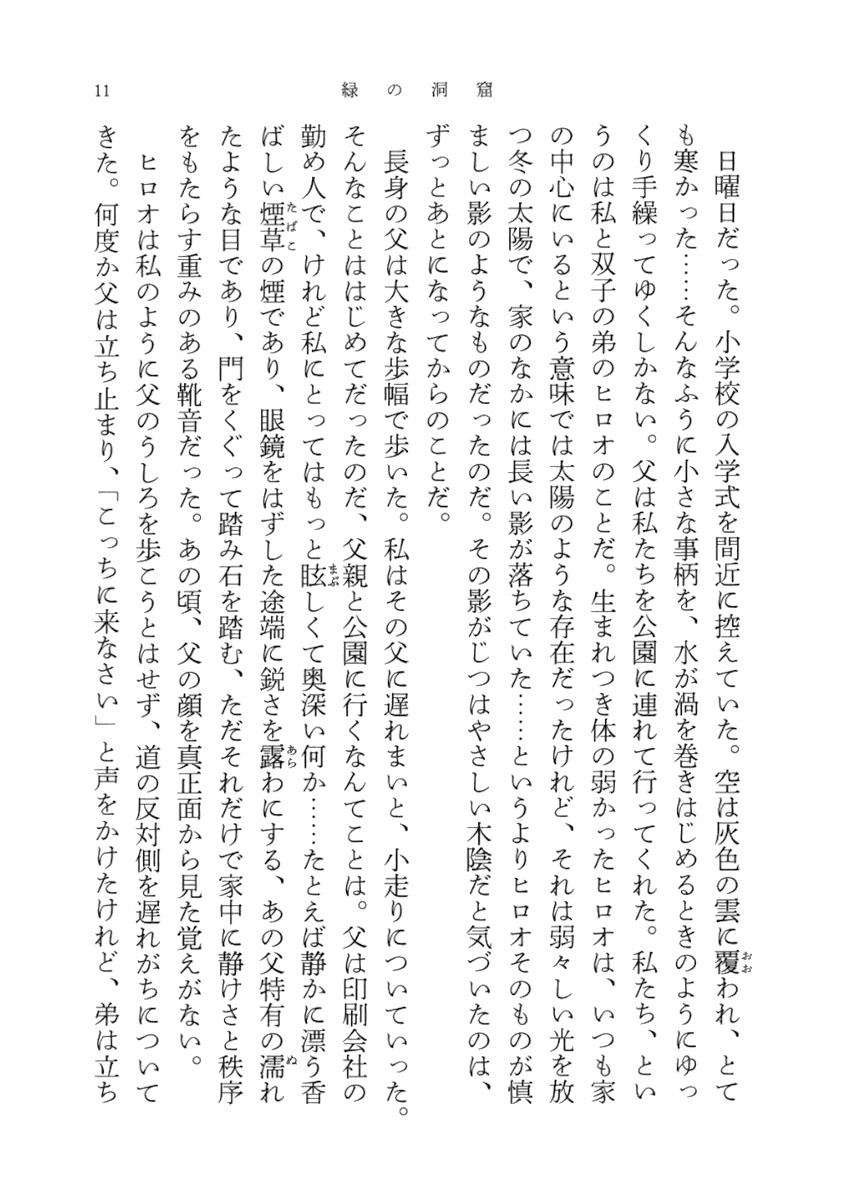 11
緑の洞窟
日曜日だった。小学校の入学式を間近に控えていた。空は灰色の雲に覆われ、とて
も寒かった……そんなふうに小さな事柄を、水が渦を巻きはじめるときのようにゆっ
くり手繰ってゆくしかない。父は私たちを公園に連れて行ってくれた。私たち、とい
うのは私と双子の弟のヒロオのことだ。生まれつき体の弱かったヒロオは、いつも家
の中心にいるという意味では太陽のような存在だったけれど、それは弱々しい光を放
つ冬の太陽で、家のなかには長い影が落ちていた……というよりヒロオそのものが慎
ましい影のようなものだったのだ。その影がじつはやさしい木陰だと気づいたのは、
ずっとあとになってからのことだ。
長身の父は大きな歩幅で歩いた。私はその父に遅れまいと、小走りについていった。
そんなことははじめてだったのだ、父親と公園に行くなんてことは。父は印刷会社の
勤め人で、けれど私にとってはもっと眩しくて奥深い何か……たとえば静かに漂う香
ばしい煙草の煙であり、眼鏡をはずした途端に鋭さを露わにする、あの父特有の濡れ
たような目であり、門をくぐって踏み石を踏む、ただそれだけで家中に静けさと秩序
をもたらす重みのある靴音だった。あの頃、父の顔を真正面から見た覚えがない。
ヒロオは私のように父のうしろを歩こうとはせず、道の反対側を遅れがちについて
きた。何度か父は立ち止まり、「こっちに来なさい」と声をかけたけれど、弟は立ち